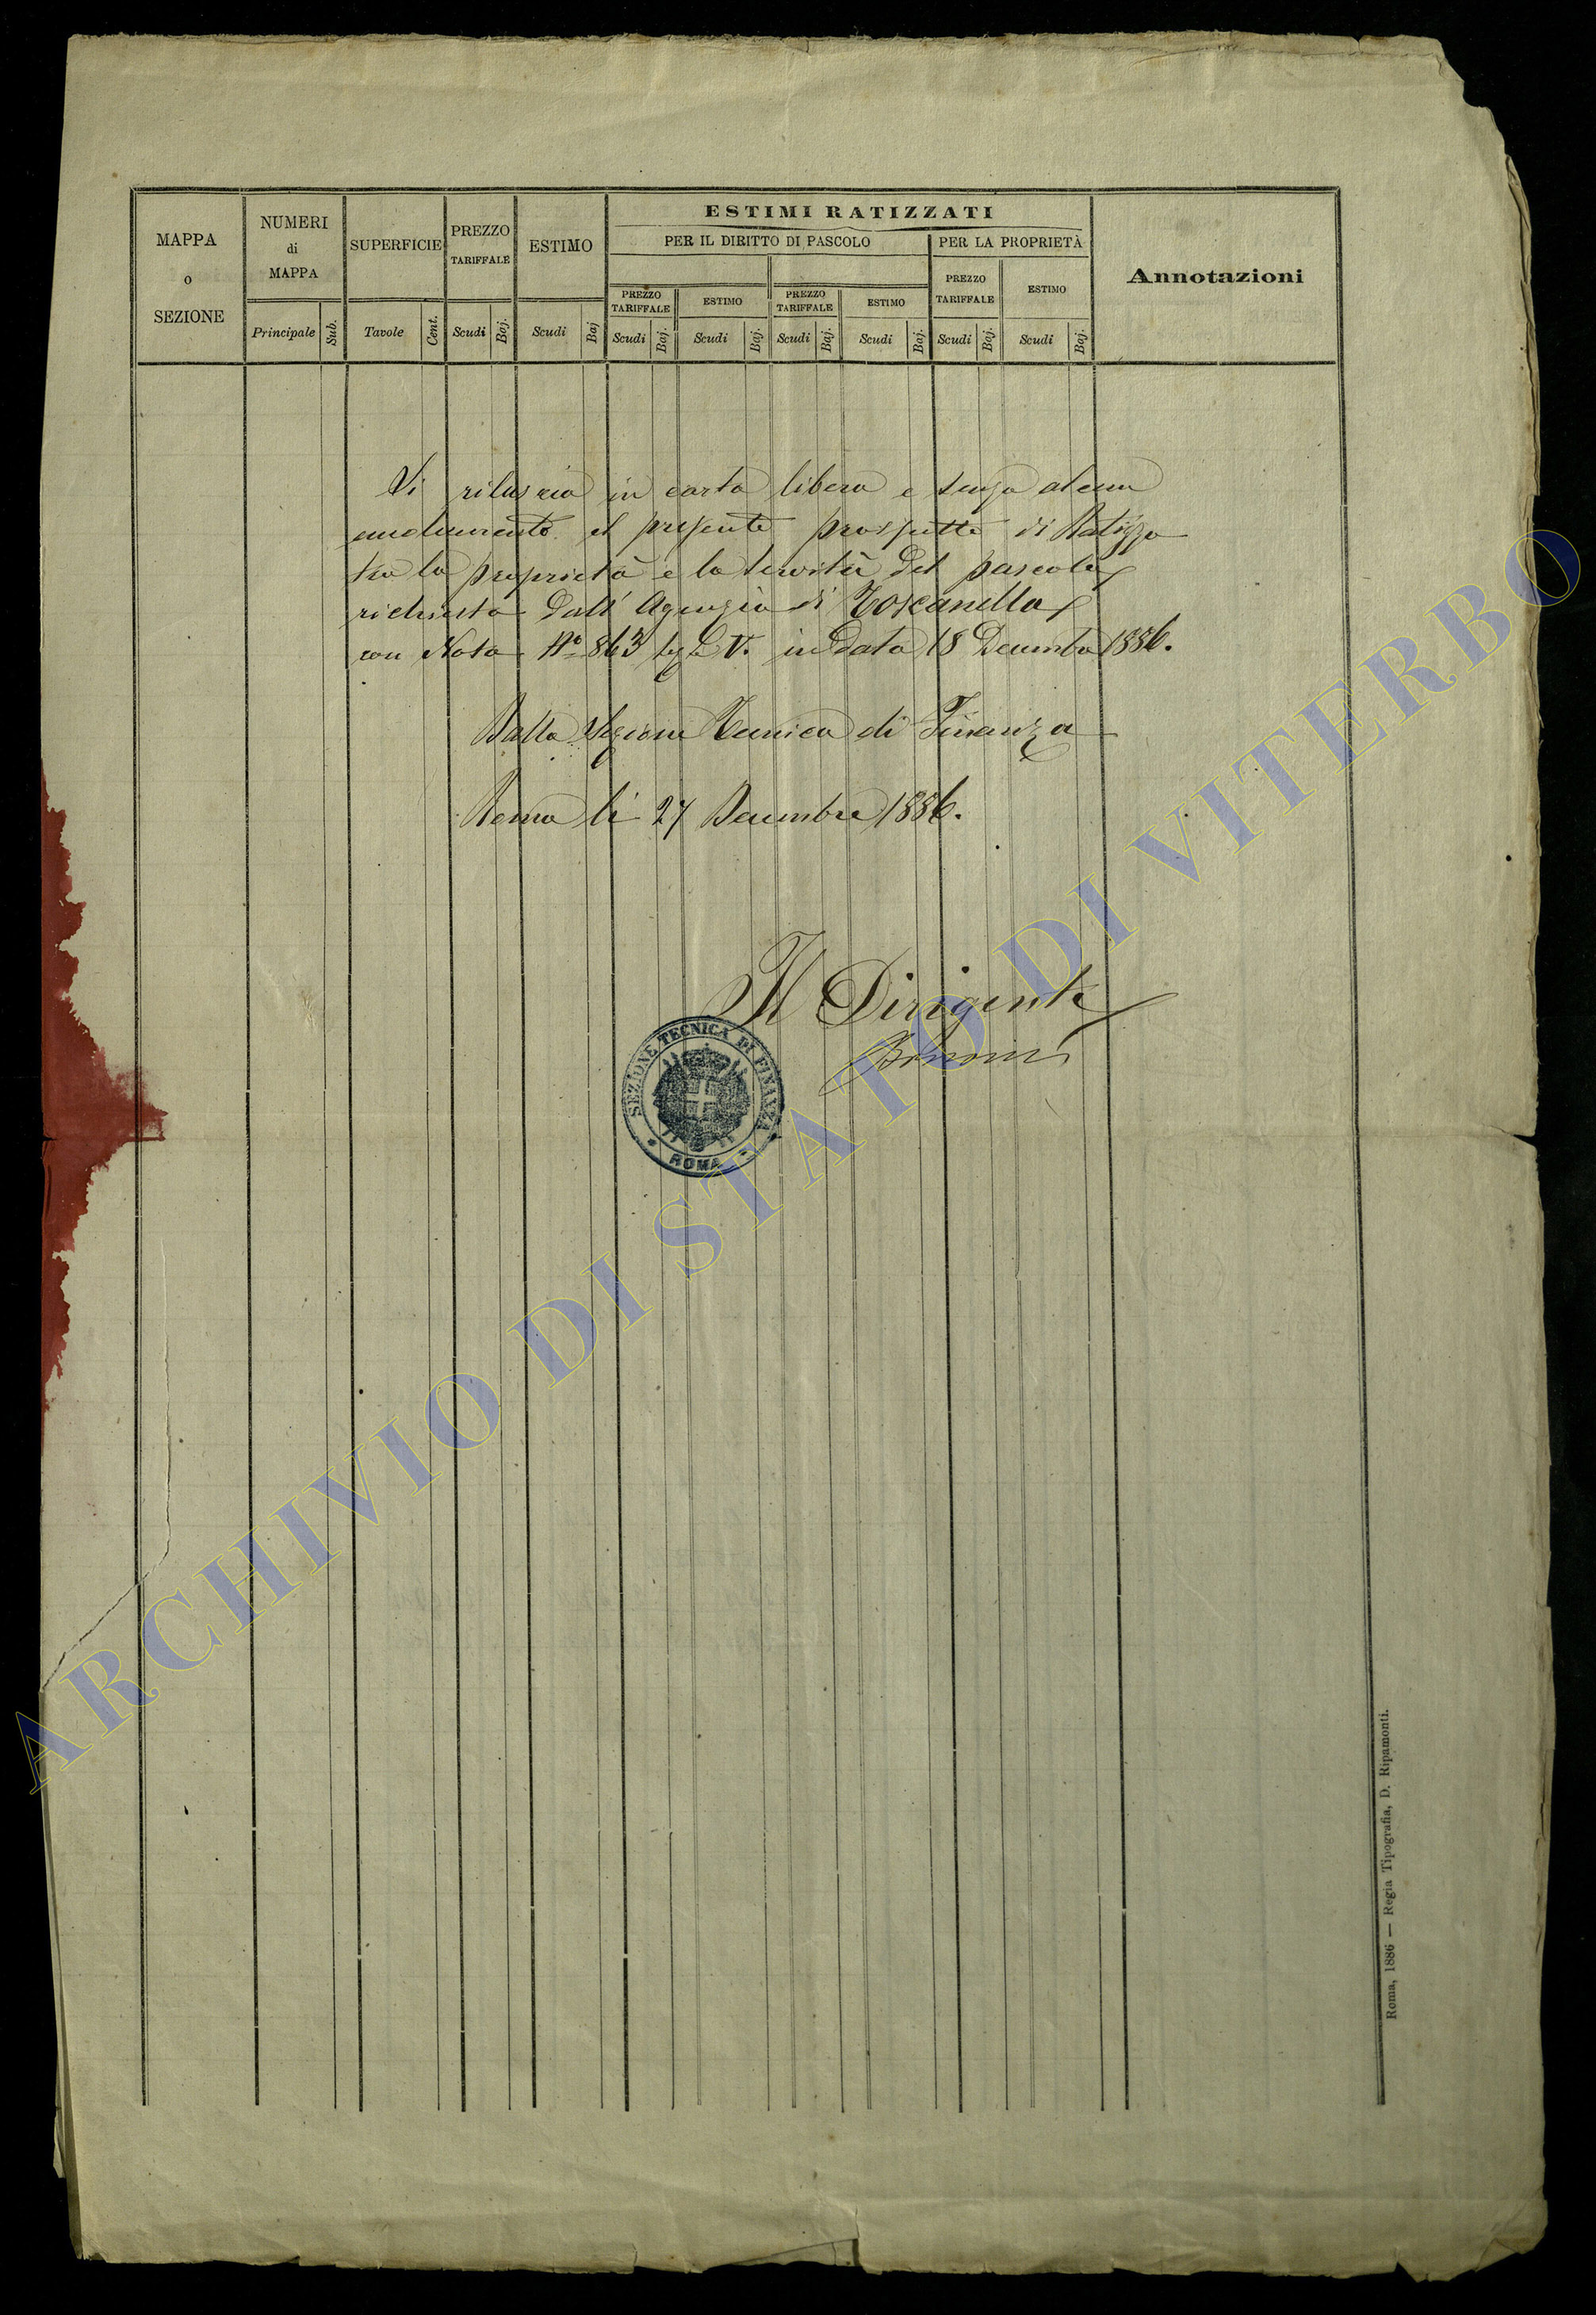 ESTIMI RATIZZATI
MAPPA
o
SEZIONE
NUMERI
di
MAPPA
Principale Sub.
SUPERFICIE
Tavole Cent.
PREZZO
TARIFFALE
Scudi Baj.
ESTIMO
Scudi Baj
PER IL DIRITTO DI PASCOLO
PREZZO
TARIFFALE
Scudi Baj.
ESTIMO
Scudi Baj.
PREZZO
TARIFFALE
Scudi Baj.
ESTIMO
Scudi Baj.
PER LA PROPRIETÀ
PREZZO
TARIFFALE
Scudi Baj.
ESTIMO
Scudi Baj.
Annotazioni
Si rilascia in carta libera e senza alcun
emolumento il presente prospetto di Ratizzo
tra la proprietà e la servitù del pascolo
richiesto dall' Agenzia di Toscanella
con Nota N.º 863 in data 18 Decembre 1886.
Dalla Sezione Tecnica di Finanza
Roma li 27 Decembre 1886.
Il Dirigente
SEZIONE TECNICA DI FINANZA
ROMA
ARCHIVIO DI STATO DI VITERBO
Roma, 1886 — Regia Tipografia, D. Ripamonti.